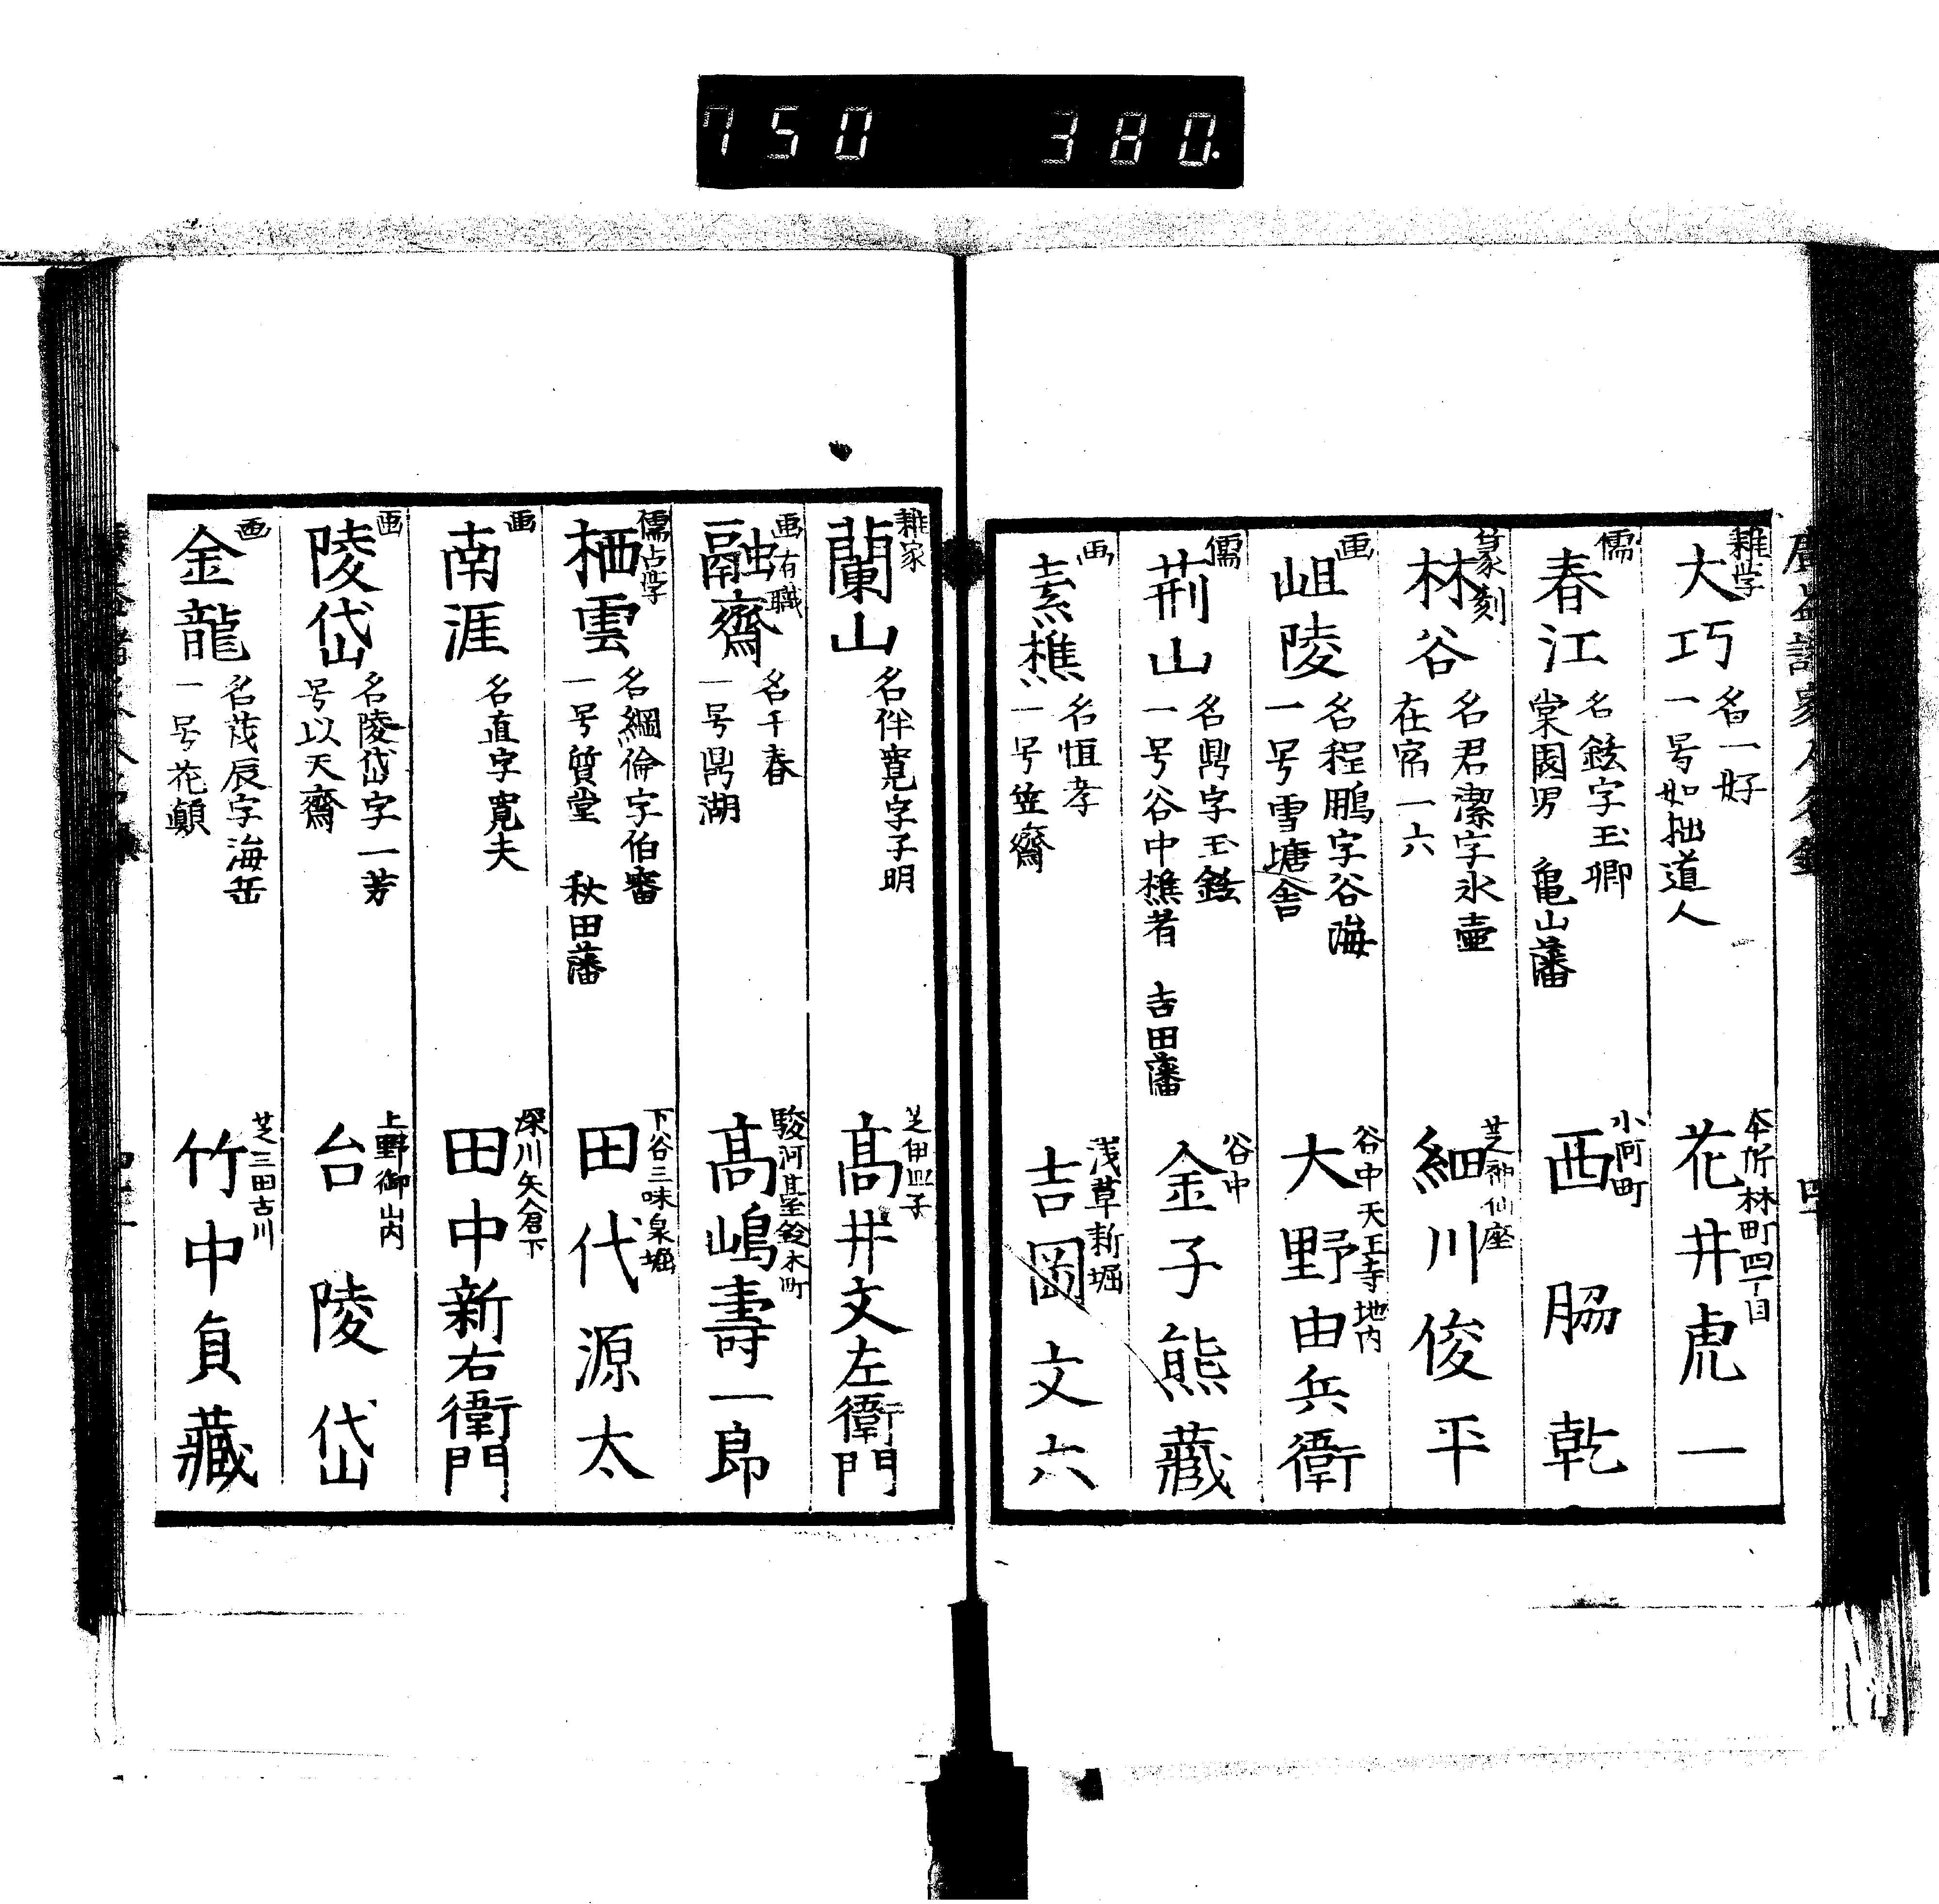 750 380.
雑学
大巧
名一好
一号如拙道人
本所林町四丁目
花井虎一
儒
春江
名鉉字玉卿
棠園男 亀山藩
小河町
西脇乾
篆刻
林谷
名君潔字氷壷
在宿一六
芝神仙座
細川俊平
画
岨陵
名程鵬字谷海
一号雪塘舎
谷中天王寺地内
大野由兵衛
儒
荊山
名鼎字玉鉉
一号谷中樵者 吉田藩
谷中
金子熊藏
画
素樵
名恒孝
一号笠齋
浅草新堀
吉岡文六
雑家
蘭山
名伴寛字子明
芝伊皿子
髙井文左衛門
画有職
融齋
名千春
一号鼎湖
駿河臺鈴木町
髙嶋壽一郎
儒占学
栖雲
名綱倫字伯審
一号質堂 秋田藩
下谷三味泉堀
田代源太
画
南涯
名直字寛夫
深川矢倉下
田中新右衛門
画
陵岱
名陵岱字一芳
号以天齋
上野御山内
台陵岱
画
金龍
名茂辰字海岳
一号花顛
芝三田古川
竹中負藏